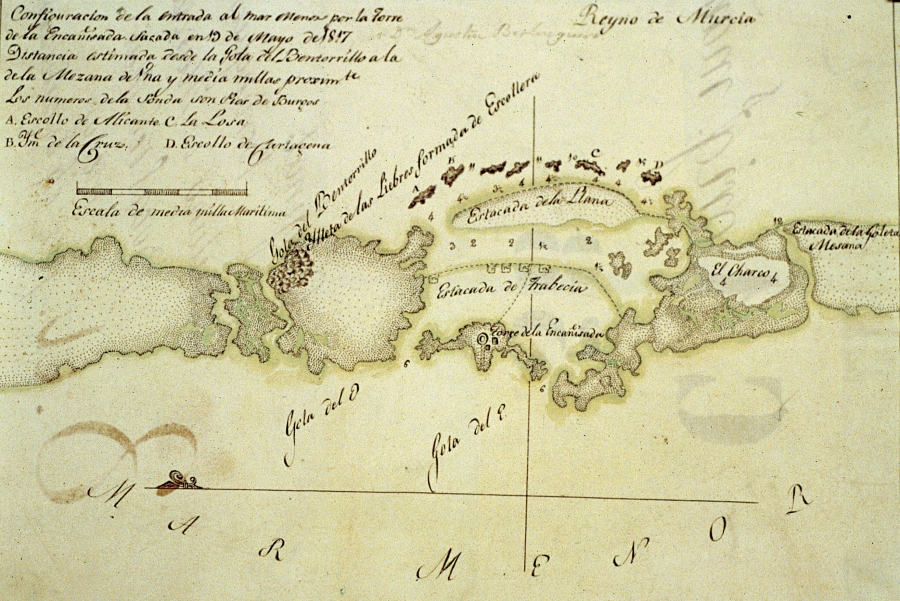 Configuracion de la entrada al mar Menor por la Torre
de la Encañisada sacada en 19 de Mayo de 1817
Distancia estimada desde la Gola del Bentorrillo a la
de la Mezana de Una y media millas proximte
Los numeros de la Sonda son Pies de Burgos
A. Escollo de Alicante C. La Losa
B. Ym de la Cruz. D. Escollo de Cartagena
Reyno de Murcia
Dn Agustin
Escala de media milla Maritima
Gola del Bentorrillo
Meta de las Liebres formada de Escollera
A
B
C
D
Estacada de la Llana
4 4 4 4 4
3 2 2 2
Estacada de Trabecia
Torre de la Encañisada
El Charco
4 4
12
Estacada de la Golera
Mesana
6
6
Gola del O
Gola del E.
MAR MENOR